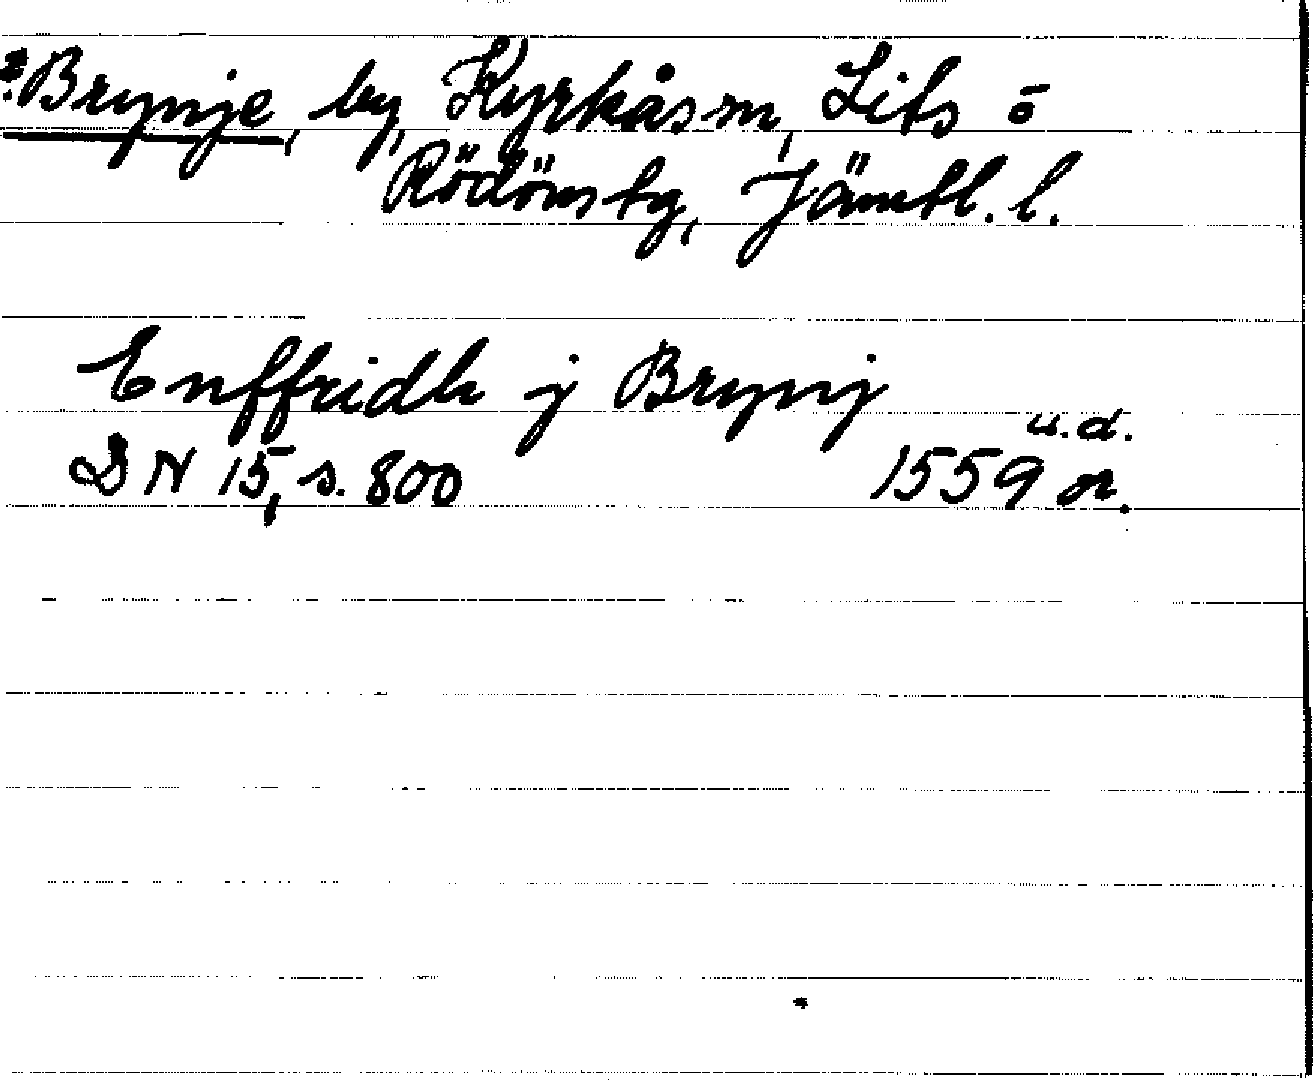 *Brynje, by, Kyrkås sn, Lits o
Rödöns tg, Jämtl. l.
Enffridh j Brynj
u.d.
DN 15, s. 800 1559 or.